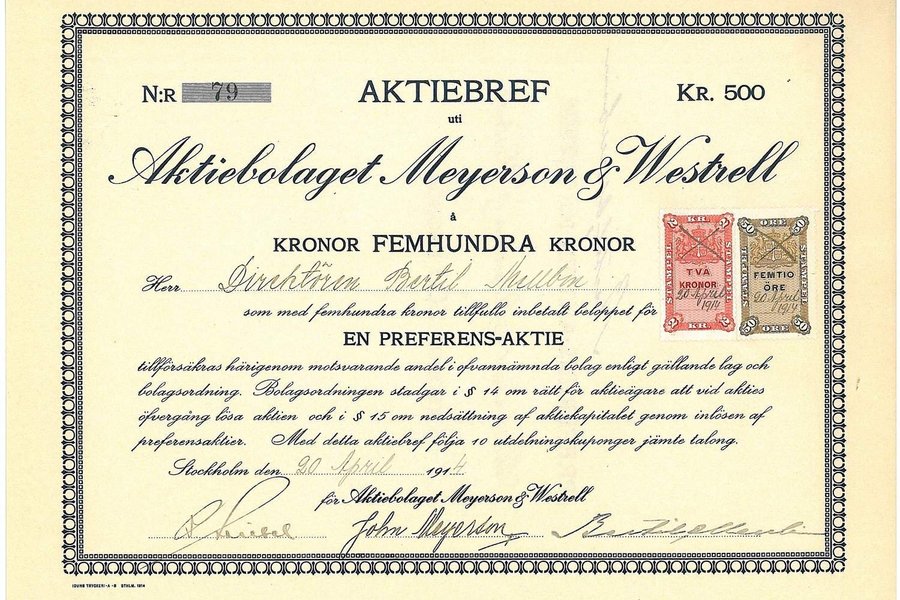 N:R 79
AKTIEBREF
KR. 500
uti
Aktiebolaget Meyerson & Westrell
å
KRONOR FEMHUNDRA KRONOR
Herr Direktören Bertil
som med femhundra kronor tillfullo inbetalt beloppet för
EN PREFERENS-AKTIE
tillförsäkras härigenom motsvarande andel i ofvannämnda bolag enligt gällande lag och
bolagsordning. Bolagsordningen stadgar i § 14 om rätt för aktieägare att vid akties
öfvergång lösa aktien och i § 15 om nedsättning af aktiekapitalet genom inlösen af
preferensaktier. Med detta aktiebref följa 10 utdelningskuponger jämte talong.
Stockholm den 20 April 1914
för Aktiebolaget Meyerson & Westrell
John Meyerson
2 KR. 2
STÄMPEL
STAMPEL
TVÅ
KRONOR
20 April
1914
2 KR. 2
50 ÖRE 50
STÄMPEL
STÄMPEL
FEMTIO
ÖRE
20 April
1914
50 ÖRE 50
IDUNS TRYCKERI-A.-B. STHLM. 1914